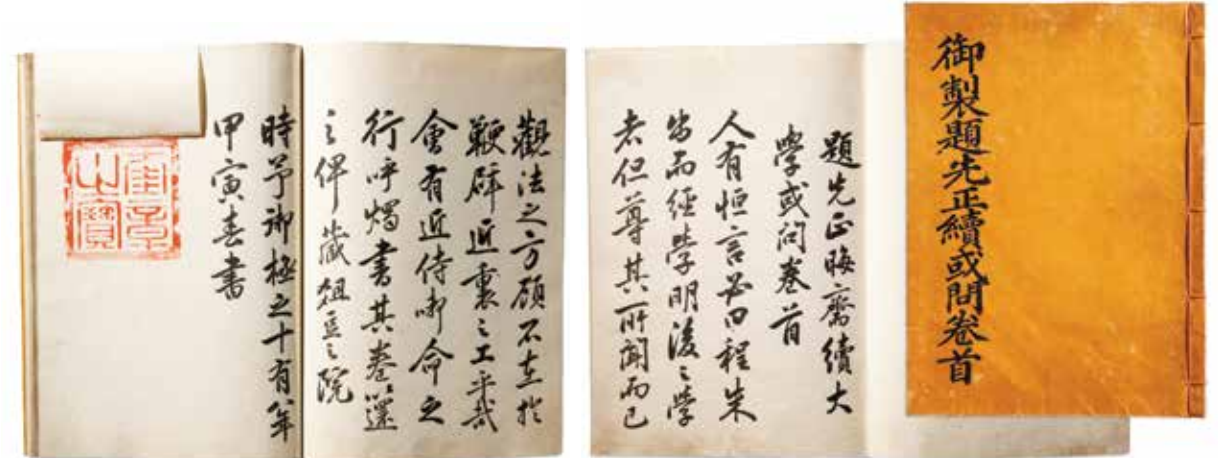 御製題先正續或問卷首
題先正晦齋續大
學或問卷首
人有恒言必曰程朱
出而經學明後之學
者但尊其所聞而已
觀法之方顧不在於
鞭辟近裏之工乎哉
會有近侍啣命之
行呼燭書其卷以還
之俾藏俎豆之院
時予御極之十有八年
甲寅春書
奎章
之寶